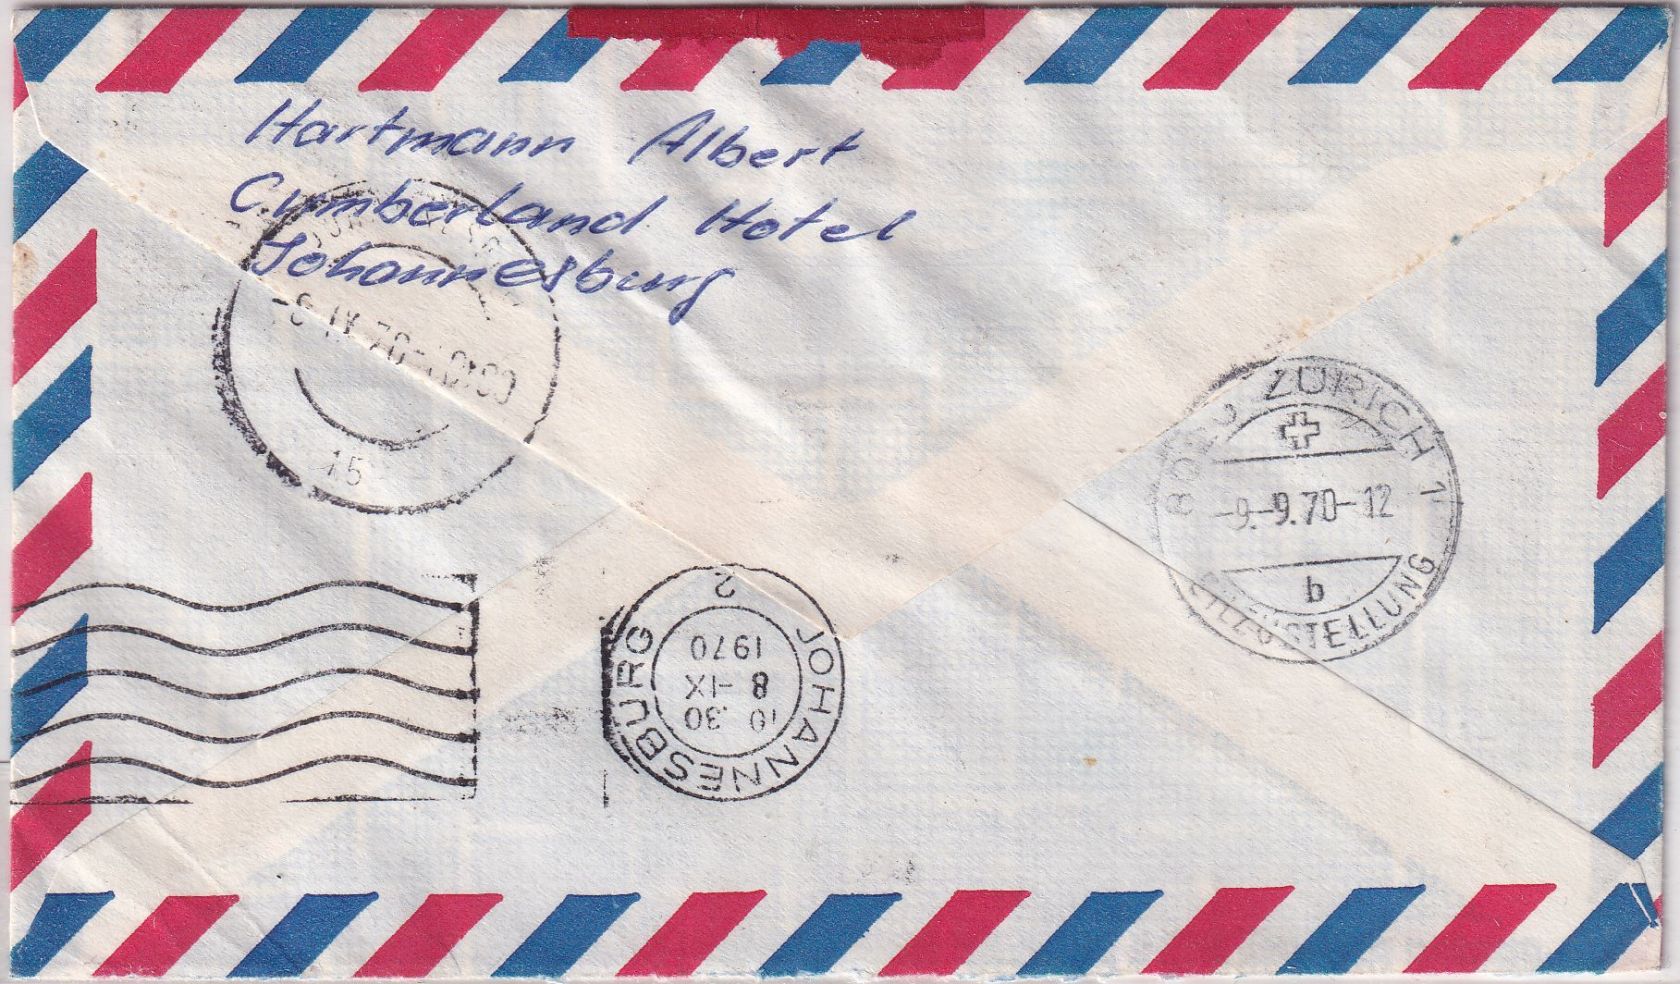 Hartmann Albert
Cumberland Hotel
Johannesburg
-8 IX 70-
15
JOHANNESBURG
10.30
8 -IX
1970
2
8023 ZÜRICH 1
-9.-9.70-12
b
EILZUSTELLUNG